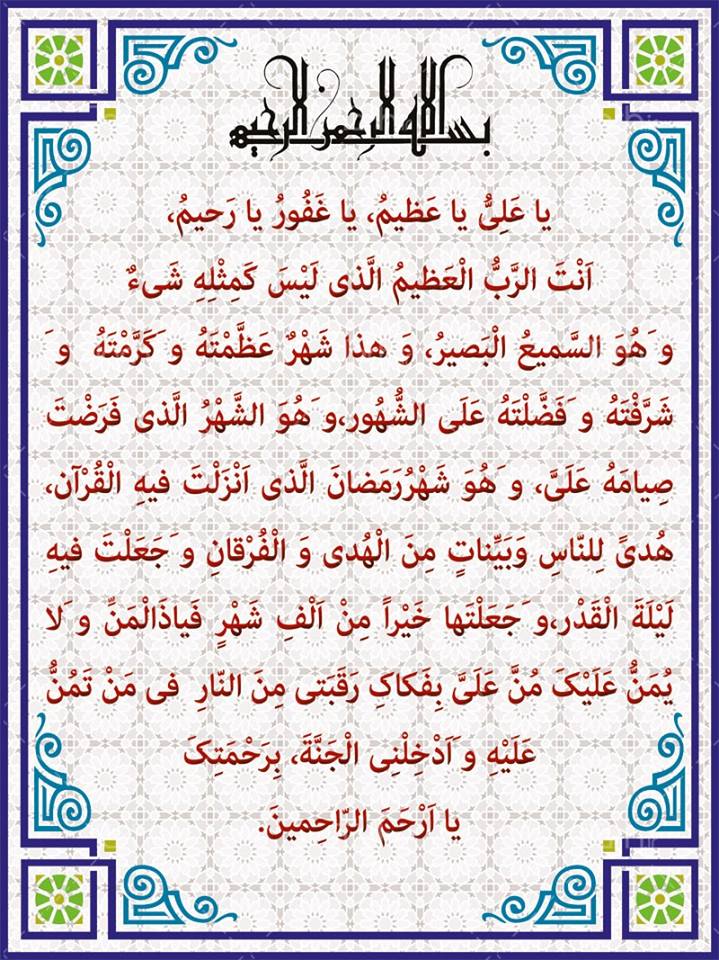 بسم الله الرحمن الرحیم
یا عَلِیُّ یا عَظیمُ، یا غَفُورُ یا رَحیمُ،
اَنْتَ الرَّبُّ الْعَظیمُ الَّذی لَیْسَ کَمِثْلِهِ شَیءٌ
وَ هُوَ السَّمیعُ الْبَصیرُ، وَ هذا شَهْرٌ عَظَّمْتَهُ وَ کَرَّمْتَهُ وَ
شَرَّفْتَهُ وَ فَضَّلْتَهُ عَلَی الشُّهُور،وَ هُوَ الشَّهْرُ الَّذی فَرَضْتَ
صِیامَهُ عَلَیَّ، وَ هُوَ شَهْرُرَمَضانَ الَّذی اَنْزَلْتَ فیهِ الْقُرْآن،
هُدیً لِلنّاسِ وَبَیِّناتٍ مِنَ الْهُدی وَ الْفُرْقانِ وَ جَعَلْتَ فیهِ
لَیْلَةَ الْقَدْر،وَ جَعَلْتَها خَیْراً مِنْ اَلْفِ شَهْرٍ فَیاذَالْمَنِّ وَ لا
یُمَنُّ عَلَیْکَ مُنَّ عَلَیَّ بِفَکاکِ رَقَبَتی مِنَ النّارِ فی مَنْ تَمُنُّ
عَلَیْهِ وَ اَدْخِلْنِی الْجَنَّةَ، بِرَحْمَتِکَ
یا اَرْحَمَ الرّاحِمینَ.